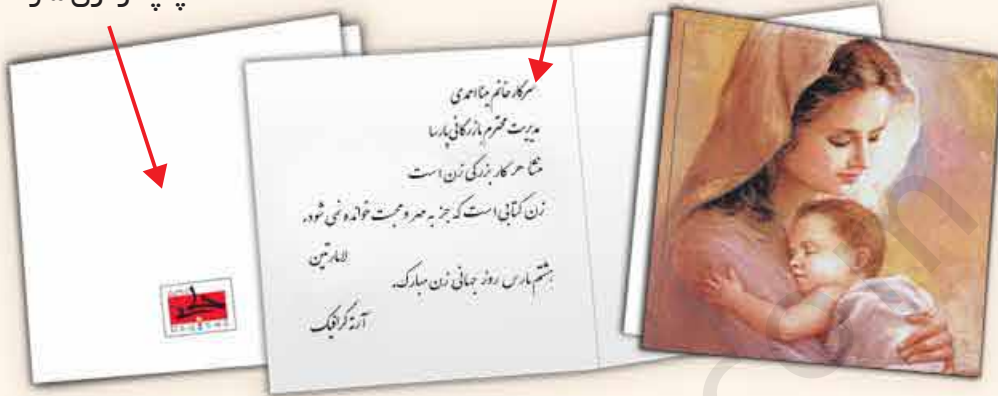 سرکار خانم مینا احمدی
مدیریت محترم بازرگانی پارسا
منشا هر کار بزرگی زن است
زن کتابی است که جز به مهر و محبت خوانده نمی شود.
لامارتین
هشتم مارس روز جهانی زن مبارک.
آرنه گرافیک